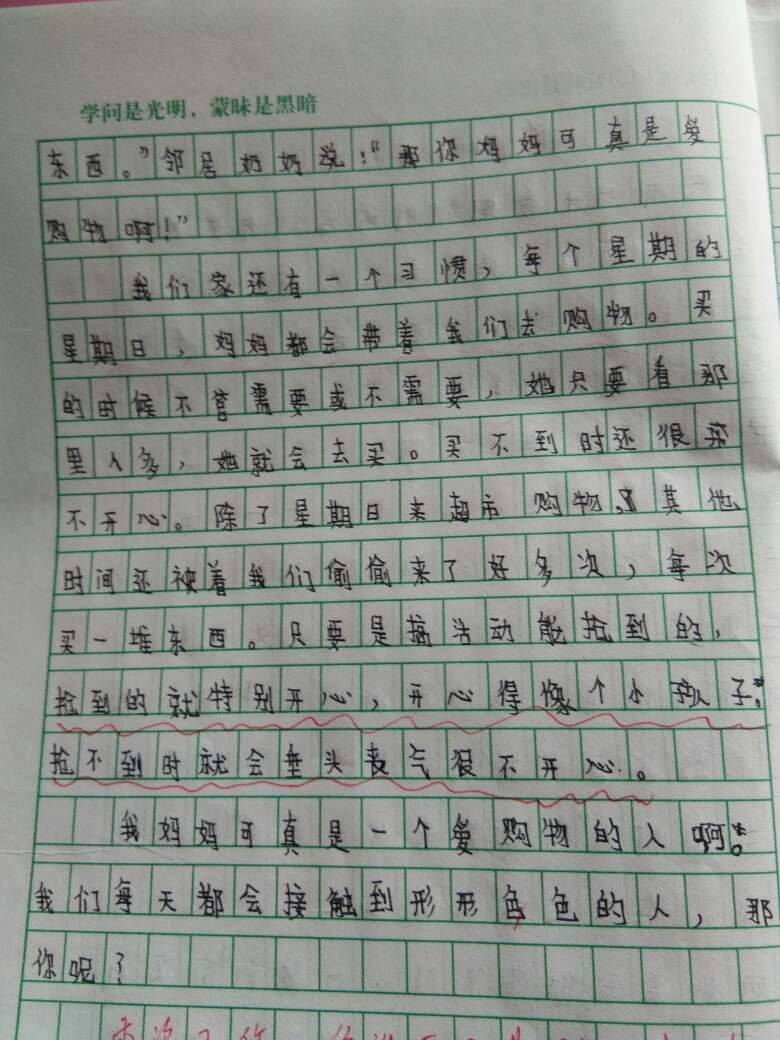 学问是光明，蒙昧是黑暗
东西。”邻居奶奶说！“那你妈妈可真是爱
购物啊！”
我们家还有一个习惯，每个星期的
星期日，妈妈都会带着我们去购物。买
的时候不管需要或不需要，她只要看那
里人多，她就会去买。买不到时还很
不开心。除了星期日来超市购物，其他
时间还被着我们偷偷来了好多次，每次
买一堆东西。只要是搞活动能抢到的，
抢到的就特别开心，开心得像个小孩子。
抢不到时就会垂头丧气很不开心。
我妈妈可真是一个爱购物的人啊。
我们每天都会接触到形形色色的人，那
你呢？